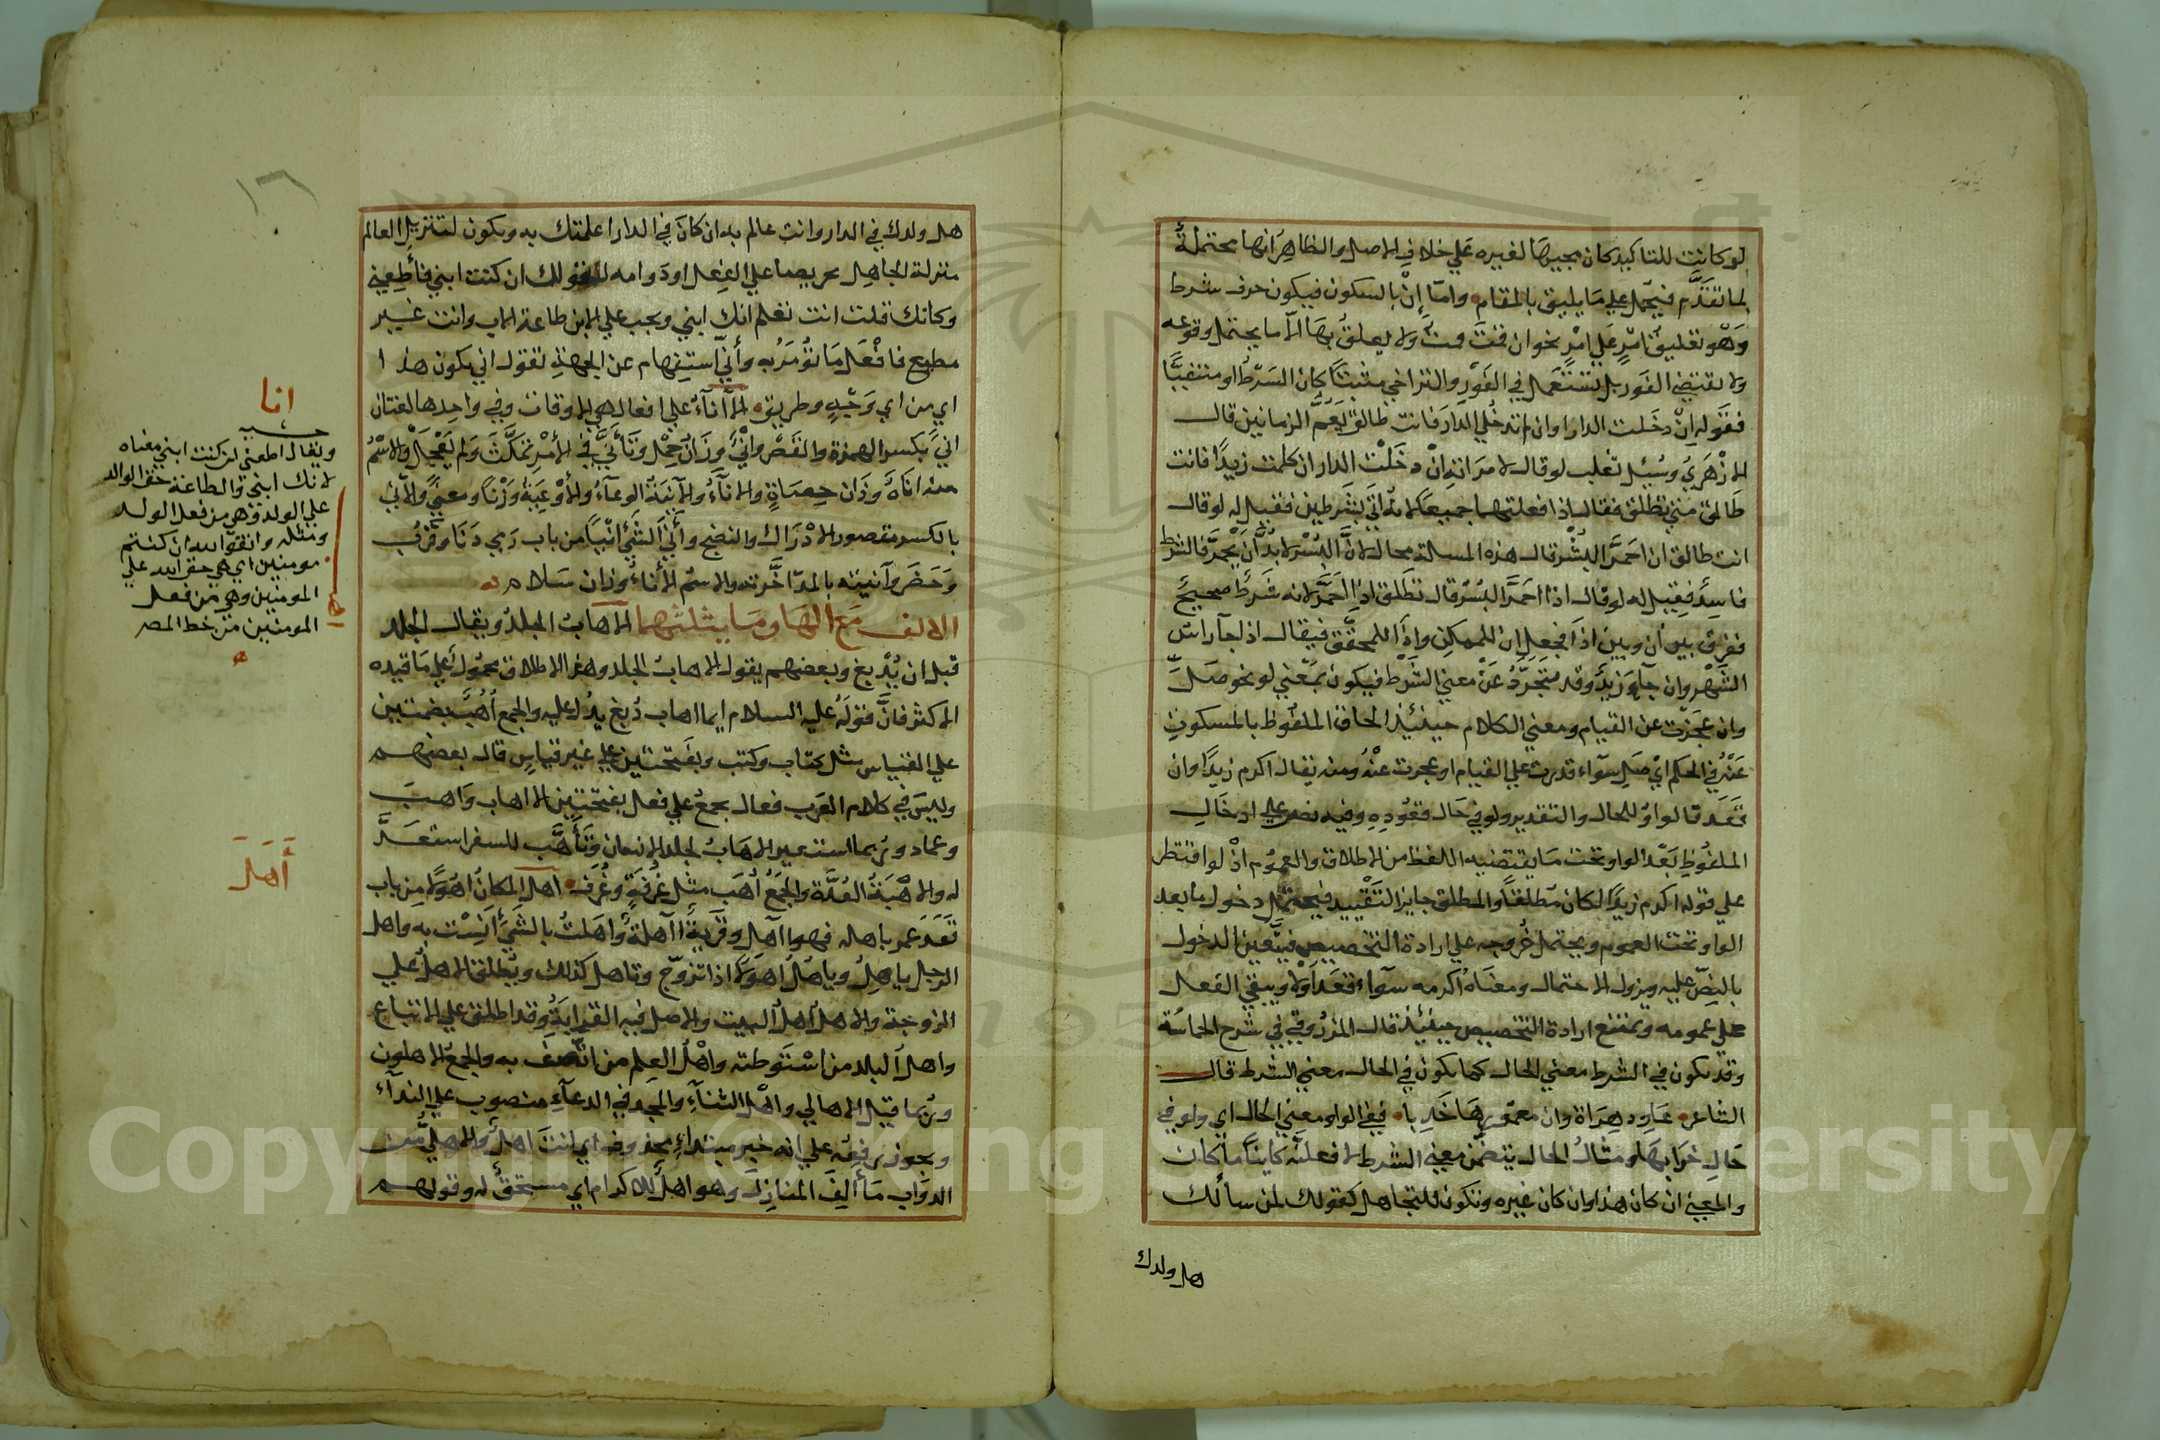 لو كانت للتاكيد كان مجيها لغيره على خلاف الاصل والظاهر انها محتملة
لما تقدم فيحمل على ما يليق بالمقام واما إن بالسكون فيكون حرف شرط
وهو تعليق امر على امر نحو ان قمت قمت ولا يعلق بها الا ما يحتمل وقوعه
ولا تقتضي الفور بل تستعمل في الفور والتراخي مثبتا كان الشرط او منفيا
فقوله ان دخلت الدار او ان لم تدخلي الدار فانت طالق يعم الزمانين قال
الازهري وسئل ثعلب لو قال لامراته ان دخلت الدار ان كلمت زيدا فانت
طالق متى تطلق فقال اذا فعلتهما جميعا لانه اتى بشرطين فقيل له لو قال
انت طالق ان احمر البسر قال هذه المسالة محال لان البسر لا بد ان يحمر فالشرط
فاسد فقيل له لو قال اذا احمر البسر قال تطلق اذا احمر لانه شرط صحيح
ففرق بين ان وبين اذا فجعل ان للممكن واذا للمحقق فيقال اذا جا راس
الشهر وان جا زيد وقد تتجرد عن معنى الشرط فيكون بمعنى لو نحو صل
وان عجزت عن القيام ومعنى الكلام حينئذ الحاق الملفوظ بالمسكوت
عنه في الحكم اي صل سواء قدرت على القيام او عجزت عنه ومنه يقال اكرم زيدا وان
قعد قالواو للحال والتقدير ولو في حال قعوده وفيه نص على ادخال
الملفوظ بعد الواو تحت ما يقتضيه اللفظ من الاطلاق والعموم اذ لو اقتصر
على قوله اكرم زيدا لكان مطلقا والمطلق جايز التقييد فيحتمل دخول ما بعد
الواو تحت العموم ويحتمل خروجه على ارادة التخصيص فيتعين الدخول
بالنص عليه ويزول الاحتمال ومعناه اكرمه سواء قعد اولا ويبقى الفعل
على عمومه وتمتنع ارادة التخصيص حينئذ قال المرزوقي في شرح الحماسة
وقد يكون في الشرط معنى الحال كما يكون في الحال معنى الشرط قال
الشاعر عاود هراة وان معمورها خربا ففي الواو معنى الحال اي ولو في
حال خرابها ومثال الحال يتضمن معنى الشرط لافعلنه كاينا ما كان
والمعنى ان كان هذا وان كان غيره وتكون للتجاهل كقولك لمن سألك
هل ولدك
هل ولدك في الدار وانت عالم به ان كان في الدار اعلمتك به ويكون لتنزيل العالم
منزلة الجاهل تحريصا على الفعل او دوامه كقولك ان كنت ابني فأطعني
وكانك قلت انت تعلم انك ابني ويجب على الابن طاعة الاب وانت غير
مطيع فافعل ما تؤمر به وأنى استفهام عن الجهة تقول انى يكون هذا
اي من اي وجه وطريق الآناء على افعال هي الاوقات وفي واحدها لغتان
اني بكسر الهمزة والقصر واني وزان حمل وتأنى في الامر تمكث ولم يعجل والاسم
منه اناة وزان حصاة والاناء والآنية الوعاء والاوعية وزنا ومعنى والانى
بالكسر مقصور الادراك والنضج وأنى الشئ انيا من باب رمى دنا وقرب
وحضر وآنيته بالمد اخرته والاسم الأناء وزان سلام
الالف مع الها وما يثلثهما الاهاب الجلد ويقال الجلد
قبل ان يدبغ وبعضهم يقول الاهاب الجلد وهذا الاطلاق محمول على ما قيده
الاكثر فان قوله عليه السلام ايما اهاب دبغ يدل عليه والجمع أهب بضمتين
على القياس مثل كتاب وكتب وبفتحتين على غير قياس قال بعضهم
وليس في كلام العرب فعال يجمع على فعل بفتحتين الا اهاب واهب
وعماد وربما استعير الاهاب لجلد الانسان وتأهب للسفر استعد
له والاهبة العدة والجمع أهب مثل غرفة وغرف اهل المكان اهولا من باب
قعد عمر باهله فهو آهل وقرية آهلة وأهلت بالشئ أنست به واهل
الرجل ياهل وياهل اهولا اذا تزوج وتاهل كذلك ويطلق الاهل على
الزوجة والاهل أهل البيت والاصل فيه القرابة وقد اطلق على الاتباع
واهل البلد من استوطنه واهل العلم من اتصف به والجمع الاهلون
وربما قيل الاهالي واهل الثناء والمجد في الدعاء منصوب على النداء
ويجوز رفعه على انه خبر مبتداء محذوف اي انت اهل والاهلي من
الدواب ما ألف المنازل وهو اهل للاكرام اي مستحق له وقولهم
١٦
انا
ويقال اطعني ان كنت ابني معناه
لانك ابني والطاعة حق الوالد
على الولد وهي من فعل الولد
ومثله واتقوا الله ان كنتم
مومنين اي هي حق الله على
المومنين وهي من فعل
المومنين من خط المص
أهل
Copyright © King Saud University
1957